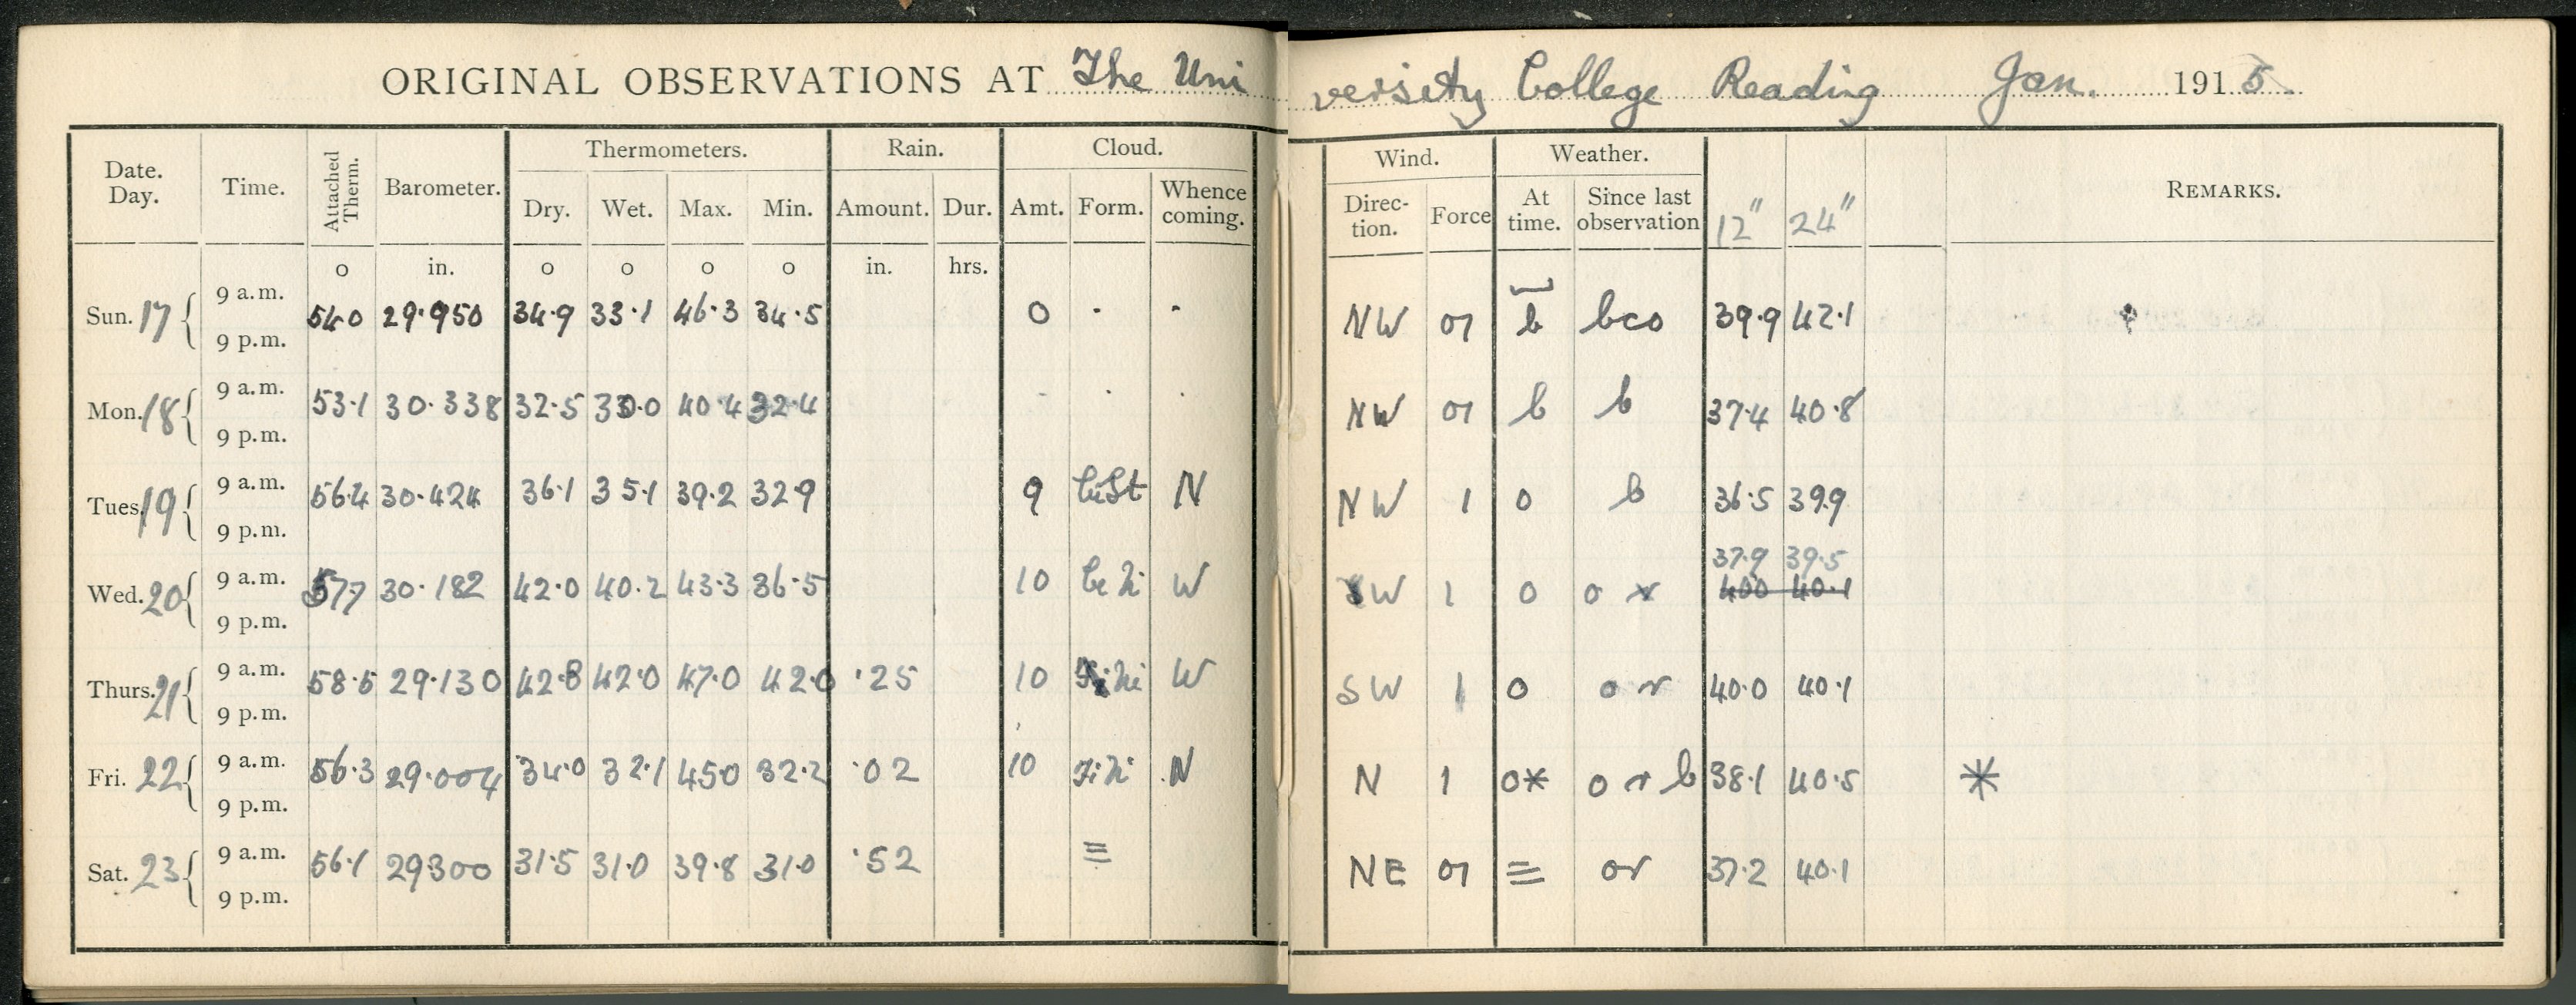 ORIGINAL OBSERVATIONS AT The University College Reading Jan. 1915
Date. Day. Time. Attached Therm. Barometer. Thermometers. Rain. Cloud. Wind. Weather. REMARKS.
Dry. Wet. Max. Min. Amount. Dur. Amt. Form. Whence coming. Direction. Force At time. Since last observation 12" 24"
o in. o o o o in. hrs.
Sun. 17 9 a.m. 54.0 29.950 34.9 33.1 46.3 34.5 0 - - NW 01 b bco 39.9 42.1
9 p.m.
Mon. 18 9 a.m. 53.1 30.338 32.5 30.0 40.4 32.4 - . . NW 01 b b 37.4 40.8
9 p.m.
Tues. 19 9 a.m. 56.4 30.424 36.1 35.1 39.2 32.9 9 CiSt N NW 1 o b 36.5 39.9
9 p.m.
37.9 39.5
Wed. 20 9 a.m. 57.7 30.182 42.0 40.2 43.3 36.5 10 W SW 1 o o r 40.0 40.1
9 p.m.
Thurs. 21 9 a.m. 58.5 29.130 42.8 42.0 47.0 42.0 .25 10 Ni W SW 1 o o r 40.0 40.1
9 p.m.
Fri. 22 9 a.m. 56.3 29.004 34.0 32.1 45.0 32.2 .02 10 N N 1 o* o r b 38.1 40.5 *
9 p.m.
Sat. 23 9 a.m. 56.1 29.300 31.5 31.0 39.8 31.0 .52 ≡ NE 01 ≡ or 37.2 40.1
9 p.m.